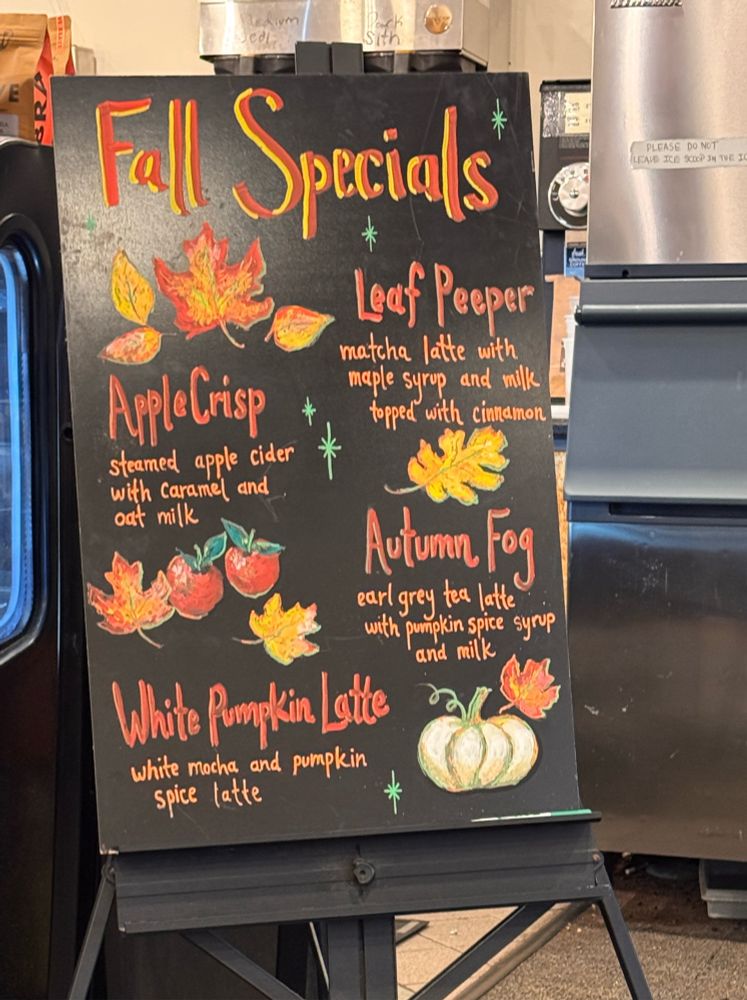 Medium
Jedi
Dark
Sith
PLEASE DO NOT
LEAVE ICE SCOOP IN THE IC
Fall Specials
Apple Crisp
steamed apple cider
with caramel and
oat milk
White Pumpkin Latte
white mocha and pumpkin
spice latte
Leaf Peeper
matcha latte with
maple syrup and milk
topped with cinnamon
Autumn Fog
earl grey tea latte
with pumpkin spice syrup
and milk